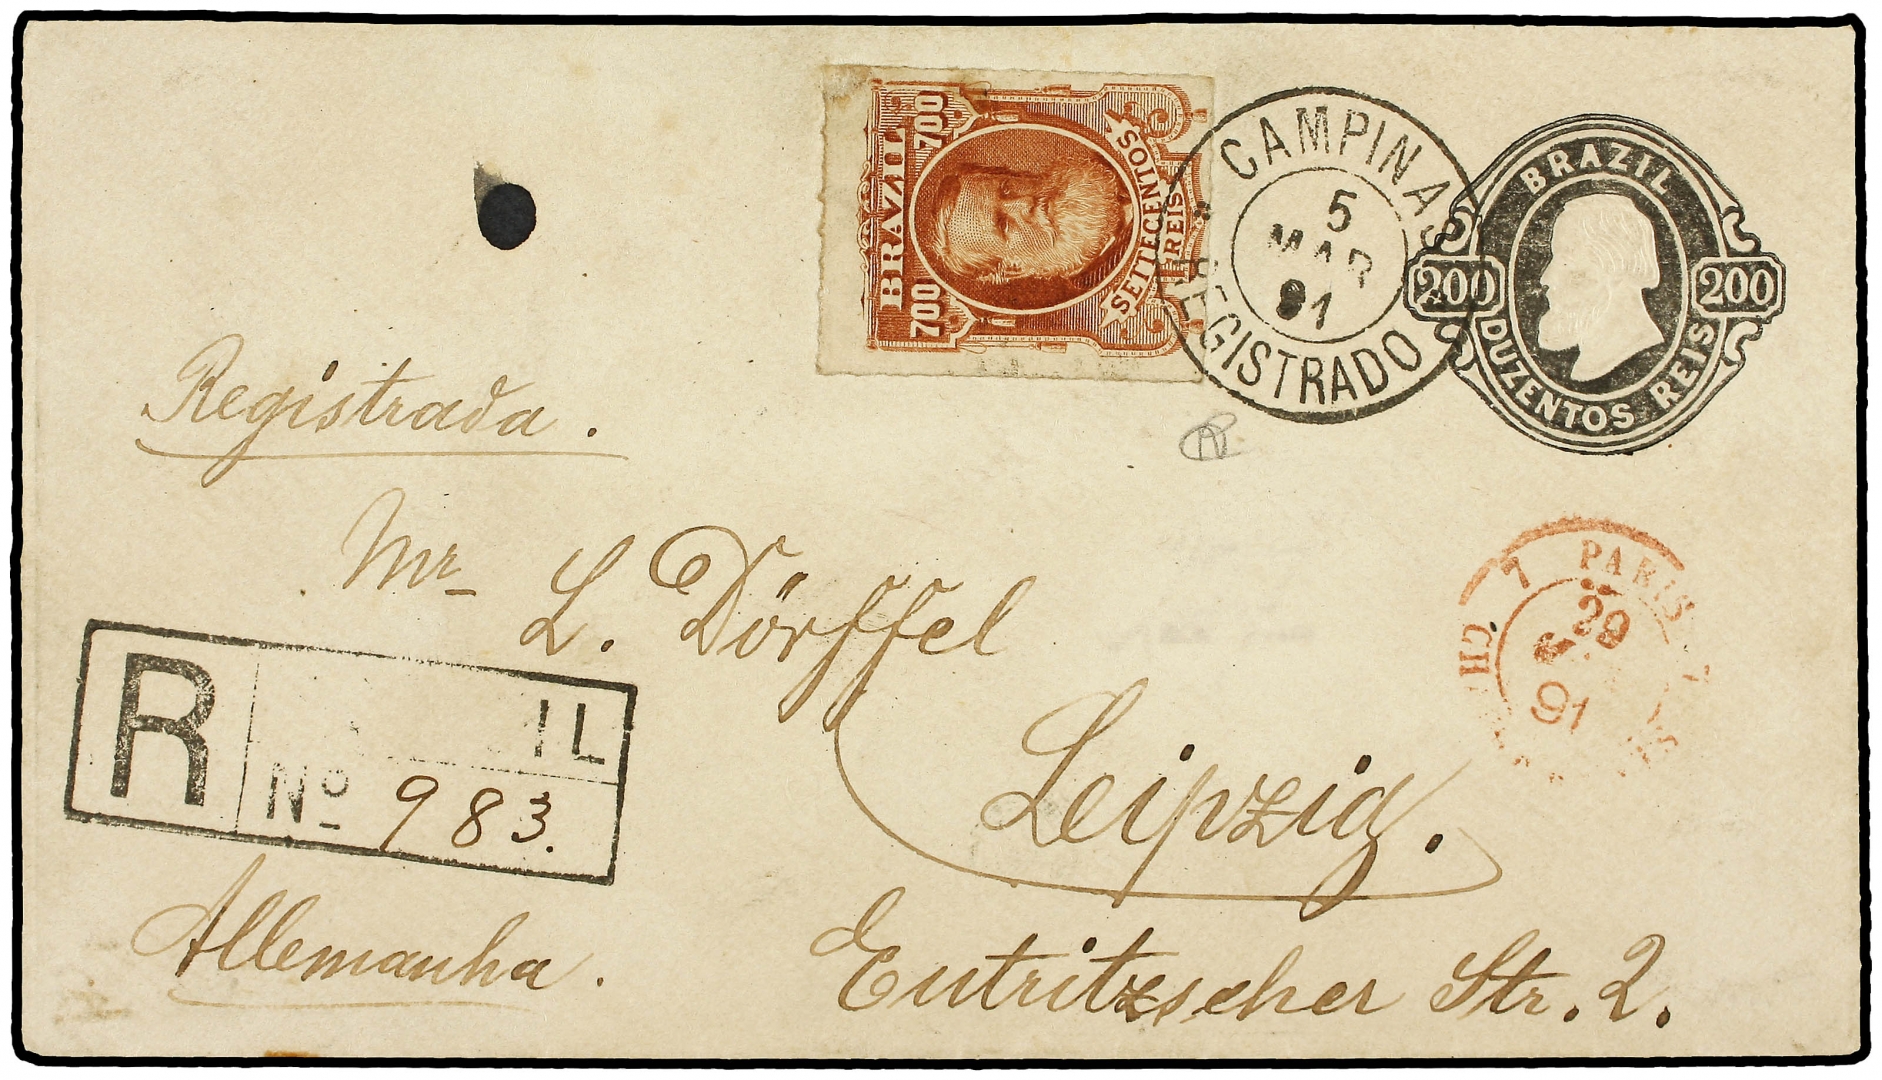 BRAZIL
700 700
SETTECENTOS
REIS
CAMPINAS
5
MAR
91
REGISTRADO
BRAZIL
200 200
DUZENTOS REIS
Registrada.
Mr L. Dörffel
Leipzig.
Eutritzscher Str. 2.
Allemanha.
R
IL
No 983.
7 PARIS
29
91